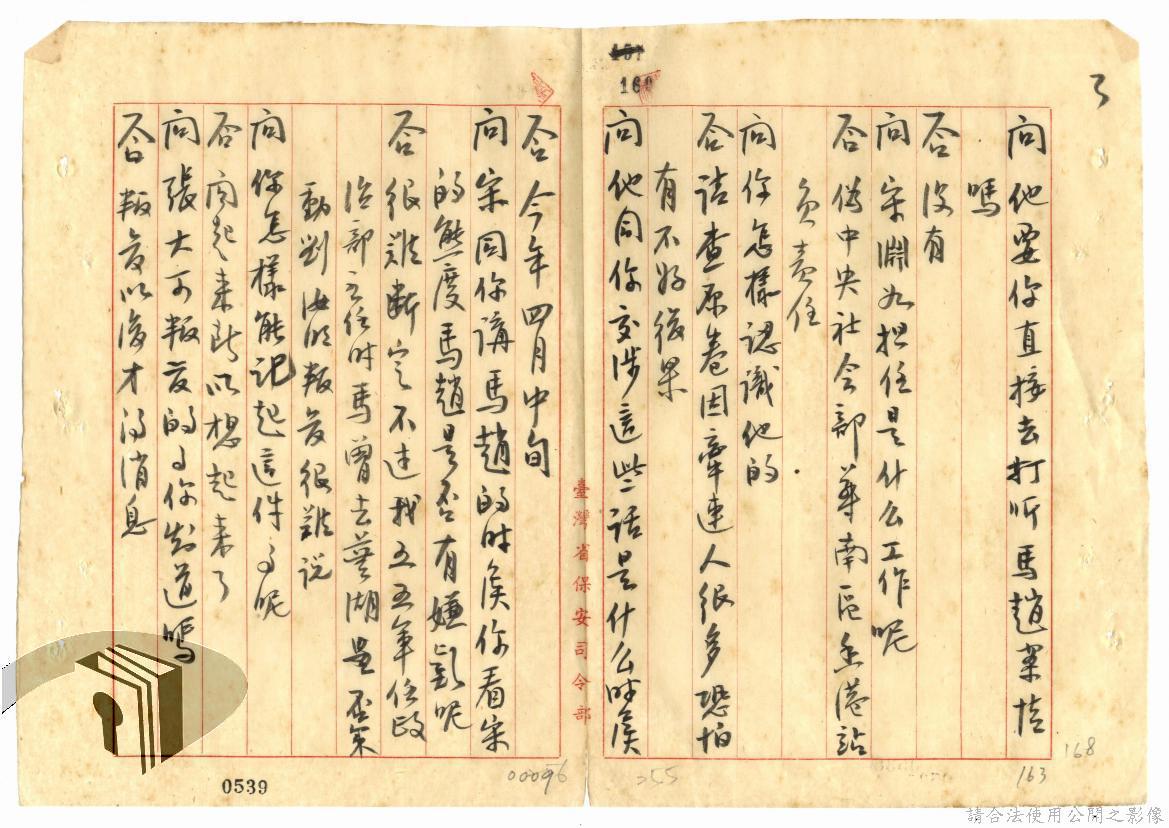 3
問他要你直接去打听馬趙案情
嗎
答沒有
問宋淵如担任是什么工作呢
答偽中央社会部華南區香港站
負責任
問你怎樣認識他的
答請查原卷因牽連人很多恐怕
有不好後果
問他同你交涉這些話是什么时候
160
答今年四月中旬
問宋同你講馬趙的时侯你看宋
的態度馬趙是否有嫌疑呢
答很难断定不过我五五軍任政
治部主任时馬曾去蕪湖是否策
動劉汝明叛变很难说
問你怎樣能記起這件事呢
答問起来所以想起来了
問張大可叛变的事你知道嗎
答叛变以後才得消息
臺灣省保安司令部
0539
00096
255
163
168
請合法使用公開之影像